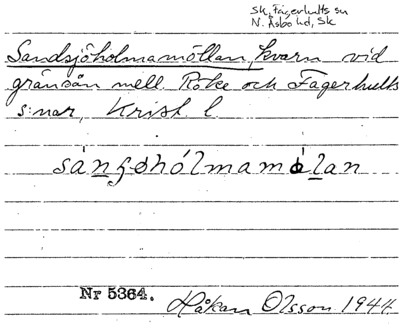 Sk, Fagerhults sn
N. Åsbo hd, Sk
Sandsjöholmamöllan, kvarn vid
gränsån mell. Röke och Fagerhults
s:nar, Krist. l.
sánʃøhólmamølan
Nr 5364.
Håkan Olsson 1944